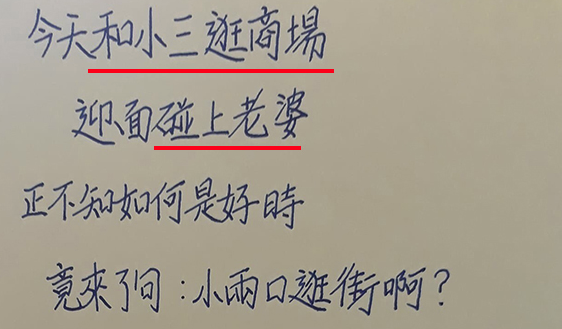 今天和小三逛商場
迎面碰上老婆
正不知如何是好時
竟來了句:小兩口逛街啊?